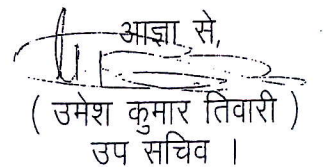 आज्ञा से,
( उमेश कुमार तिवारी )
उप सचिव ।